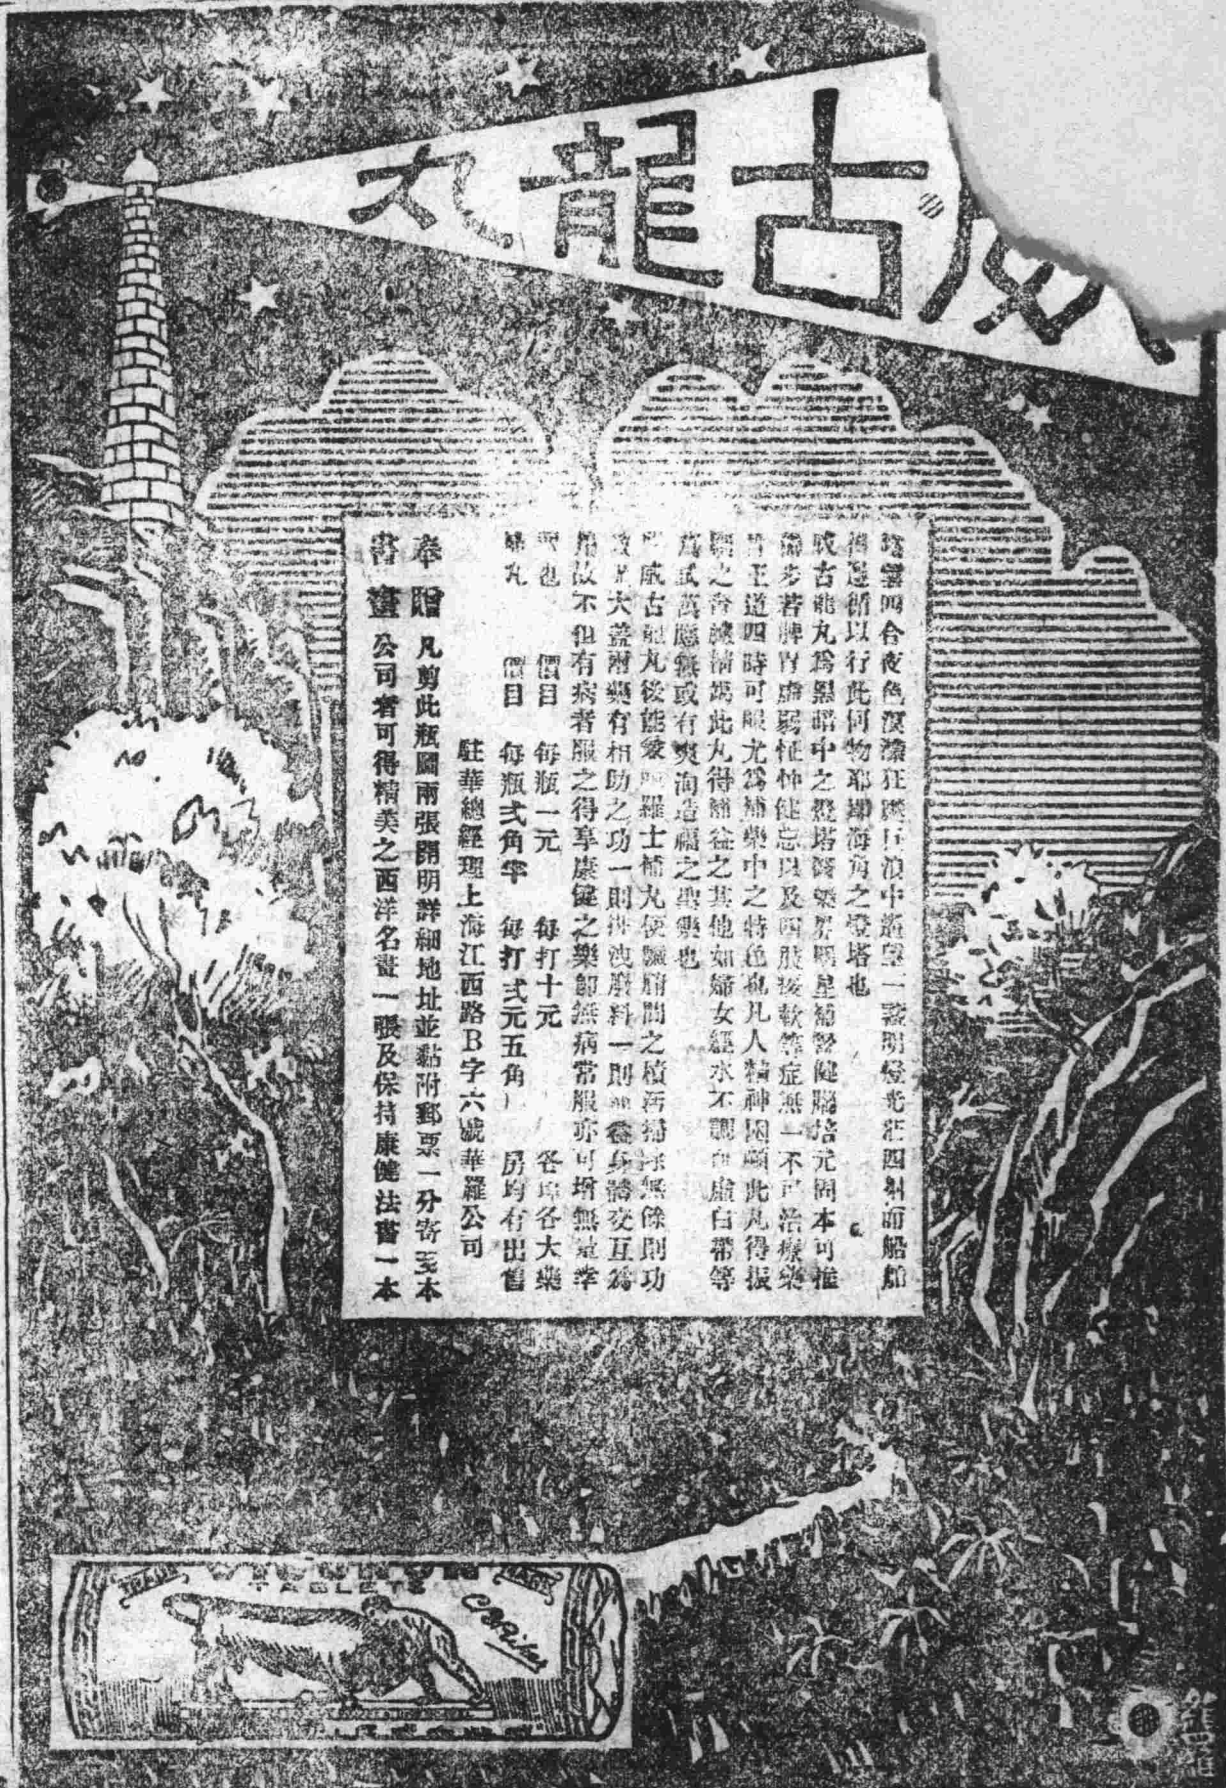 古龍丸
陰雲四合夜色溟濛狂飈巨浪中遙望一盞明燈光茫四射而船舶
得遵循以行此何物耶卽海角之燈塔也
威古龍丸爲黑暗中之燈塔醫藥界明星補腎健腦培元固本可推
獨步若脾胃虛弱怔忡健忘以及四肢痠軟等症無一不可治療藥
性王道四時可服尤爲補藥中之特色也凡人精神困頓此丸得振
之 此丸得補益之其他如婦女經水不調血虛白帶等
爲試萬應無或有爽洵造福之聖藥也
威古龍丸後能 羅士補丸使腸腑間之積污掃除無餘則功
大蓋兩藥有相助之功一則排洩廢料一則 養身體交互爲
用故不但有病者服之得享康健之樂卽無病常服亦可增無量幸
也 價目 每瓶一元 每打十元 各埠各大藥
丸 價目 每瓶弍角半 每打弍元五角 房均有出售
駐華總經理上海江西路B字六號華羅公司
奉贈 凡剪此瓶圖兩張開明詳細地址並黏附郵票一分寄至本
書畫 公司者可得精美之西洋名畫一張及保持康健法書一本
TRADE MARK
TABLETS